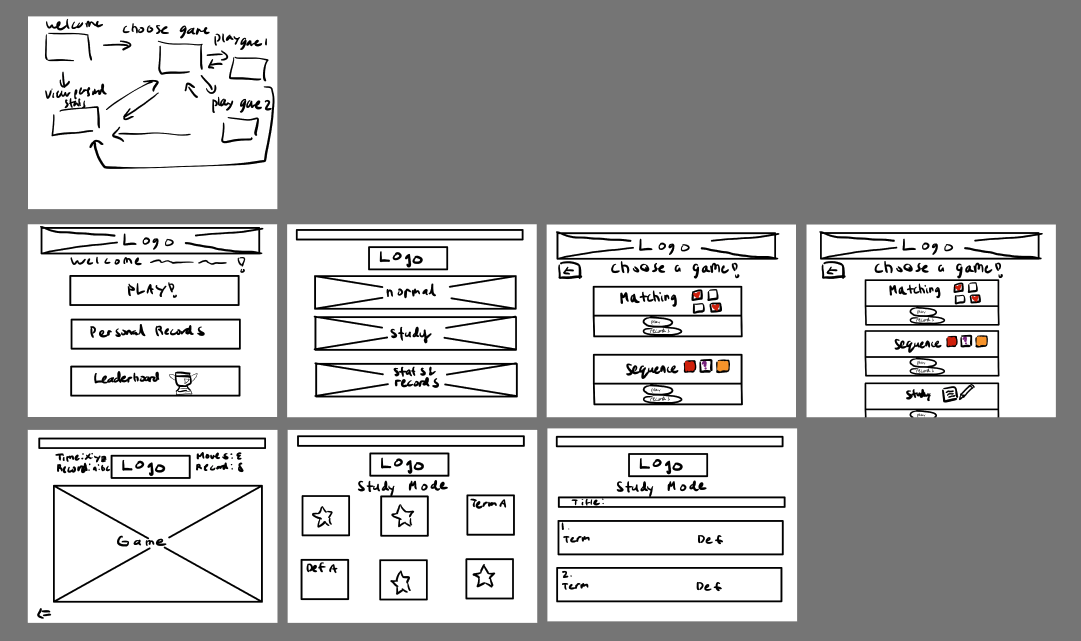 welcome
choose game
play gae1
View personal
stats
play gae 2
Logo
welcome
!
PLAY!
Personal Records
Leaderboard
Logo
normal
Study
stats &
records
Logo
Choose a game!
Matching
play
records
Sequence
?
play
records
Logo
Choose a game!
Matching
play
records
Sequence
?
play
records
Study
play
Time:xyz
Record:abc
Logo
Moves:
Record:
Game
Logo
Study Mode
Term A
Def A
Logo
Study Mode
Title:
1.
Term Def
2.
Term Def